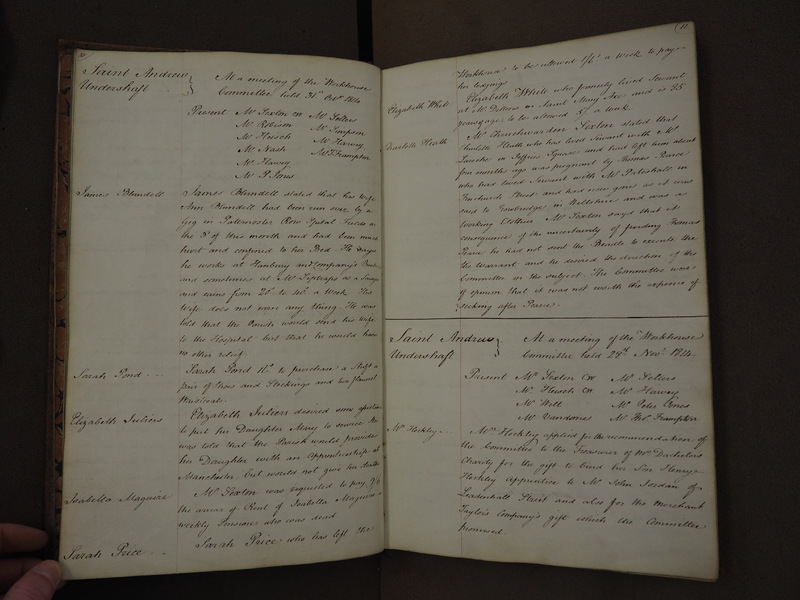 Saint Andrew
Undershaft
At a meeting of the Workhouse
Committee held 31st Octr 1814
Present Mr Sexton CW Mr Sellers
Mr Robison Mr Simpson
Mr Hoesch Mr Harvey
Mr Nash Mr Frampton
Mr Harvey
Mr P. Jones
James Blundell
James Blundell stated that his Wife
Ann Blundell had been run over by a
Gig in Paternoster Row Spital Fields on
the 3d of this month and had been much
hurt and confined to her Bed. He says
he works at Hanbury and Company's
and sometimes at Mr as a
and earns from 20s to 40s a Week. His
Wife does not earn any thing. He was
told that the Parish would send his Wife
to the Hospital but that he would have
no other relief.
Sarah Pond
Sarah Pond 12s to purchase a Shift a
pair of Shoes and Stockings and two flannel
Waistcoats.
Elizabeth Juliens
Elizabeth Julien desired some
to put her Daughter Mary to service She
was told that the Parish would provide
her Daughter with an Apprenticeship at
Manchester, but would not give her
Isabella Maguire
Mr Sexton was requested to pay
the arrear of Rent of Isabella Maguire a
weekly Pensioner who was dead
Sarah Price
Sarah Price who has left the
11
Workhouse to be allowed 1/6 a week to pay
her lodging
Elizabeth White
Elizabeth White who formerly lived Servant
at Mr in Saint Mary Axe and is 85
years of age to be allowed 5/ a week.
Charlotte Heath
Mr Churchwarden Sexton stated that
Charlotte Heath who has lived Servant with Mr
in Jeffries Square and had left him about
four months ago was pregnant by Thomas Pearce
who had lived Servant with Mr in
Fenchurch Street and had now gone as it was
said to Trowbridge in Wiltshire and was a
working Clothier. Mr Sexton says that in
consequence of the uncertainty of finding Thomas
Pearce he had not sent the Beadle to execute the
Warrant and he desired the direction of the
Committee on the subject. The Committee were
of opinion that it was not worth the expence of
seeking after Pearce.
Saint Andrew
Undershaft
At a meeting of the Workhouse
Committee held 28th Novr 1814
Present Mr Sexton CW Mr Sellers
Mr Hoesch CW Mr Harvey
Mr Well Mr Peter Jones
Mr Vandome Mr Frampton
Mr Hockley
Mr Hockley applied for the recommendation of
the Committee to the Treasurer of Mr
Charity for the gift to bind her Son Henry
Hockley apprentice to Mr John Jordan of
Leadenhall Street and also for the Merchant
Taylor's Company's gift which the Committee
promised.